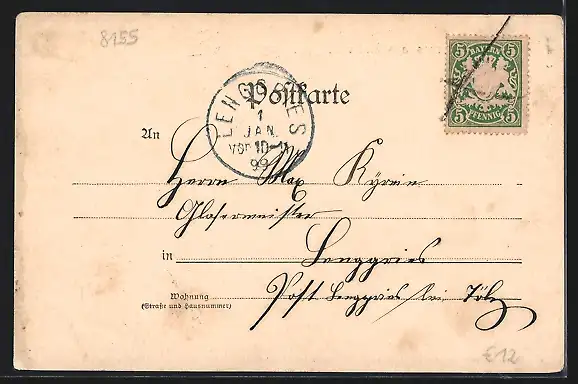 8155
5 BAYERN 5
5 PFENNIG 5
Postkarte
LENGGRIES
1
JAN.
VOR 10-11
99
An
Herrn Max Kyrein
Glasermeister
in Lenggries
Wohnung
(Straße und Hausnummer)
Post Lenggries bei Tölz
€12